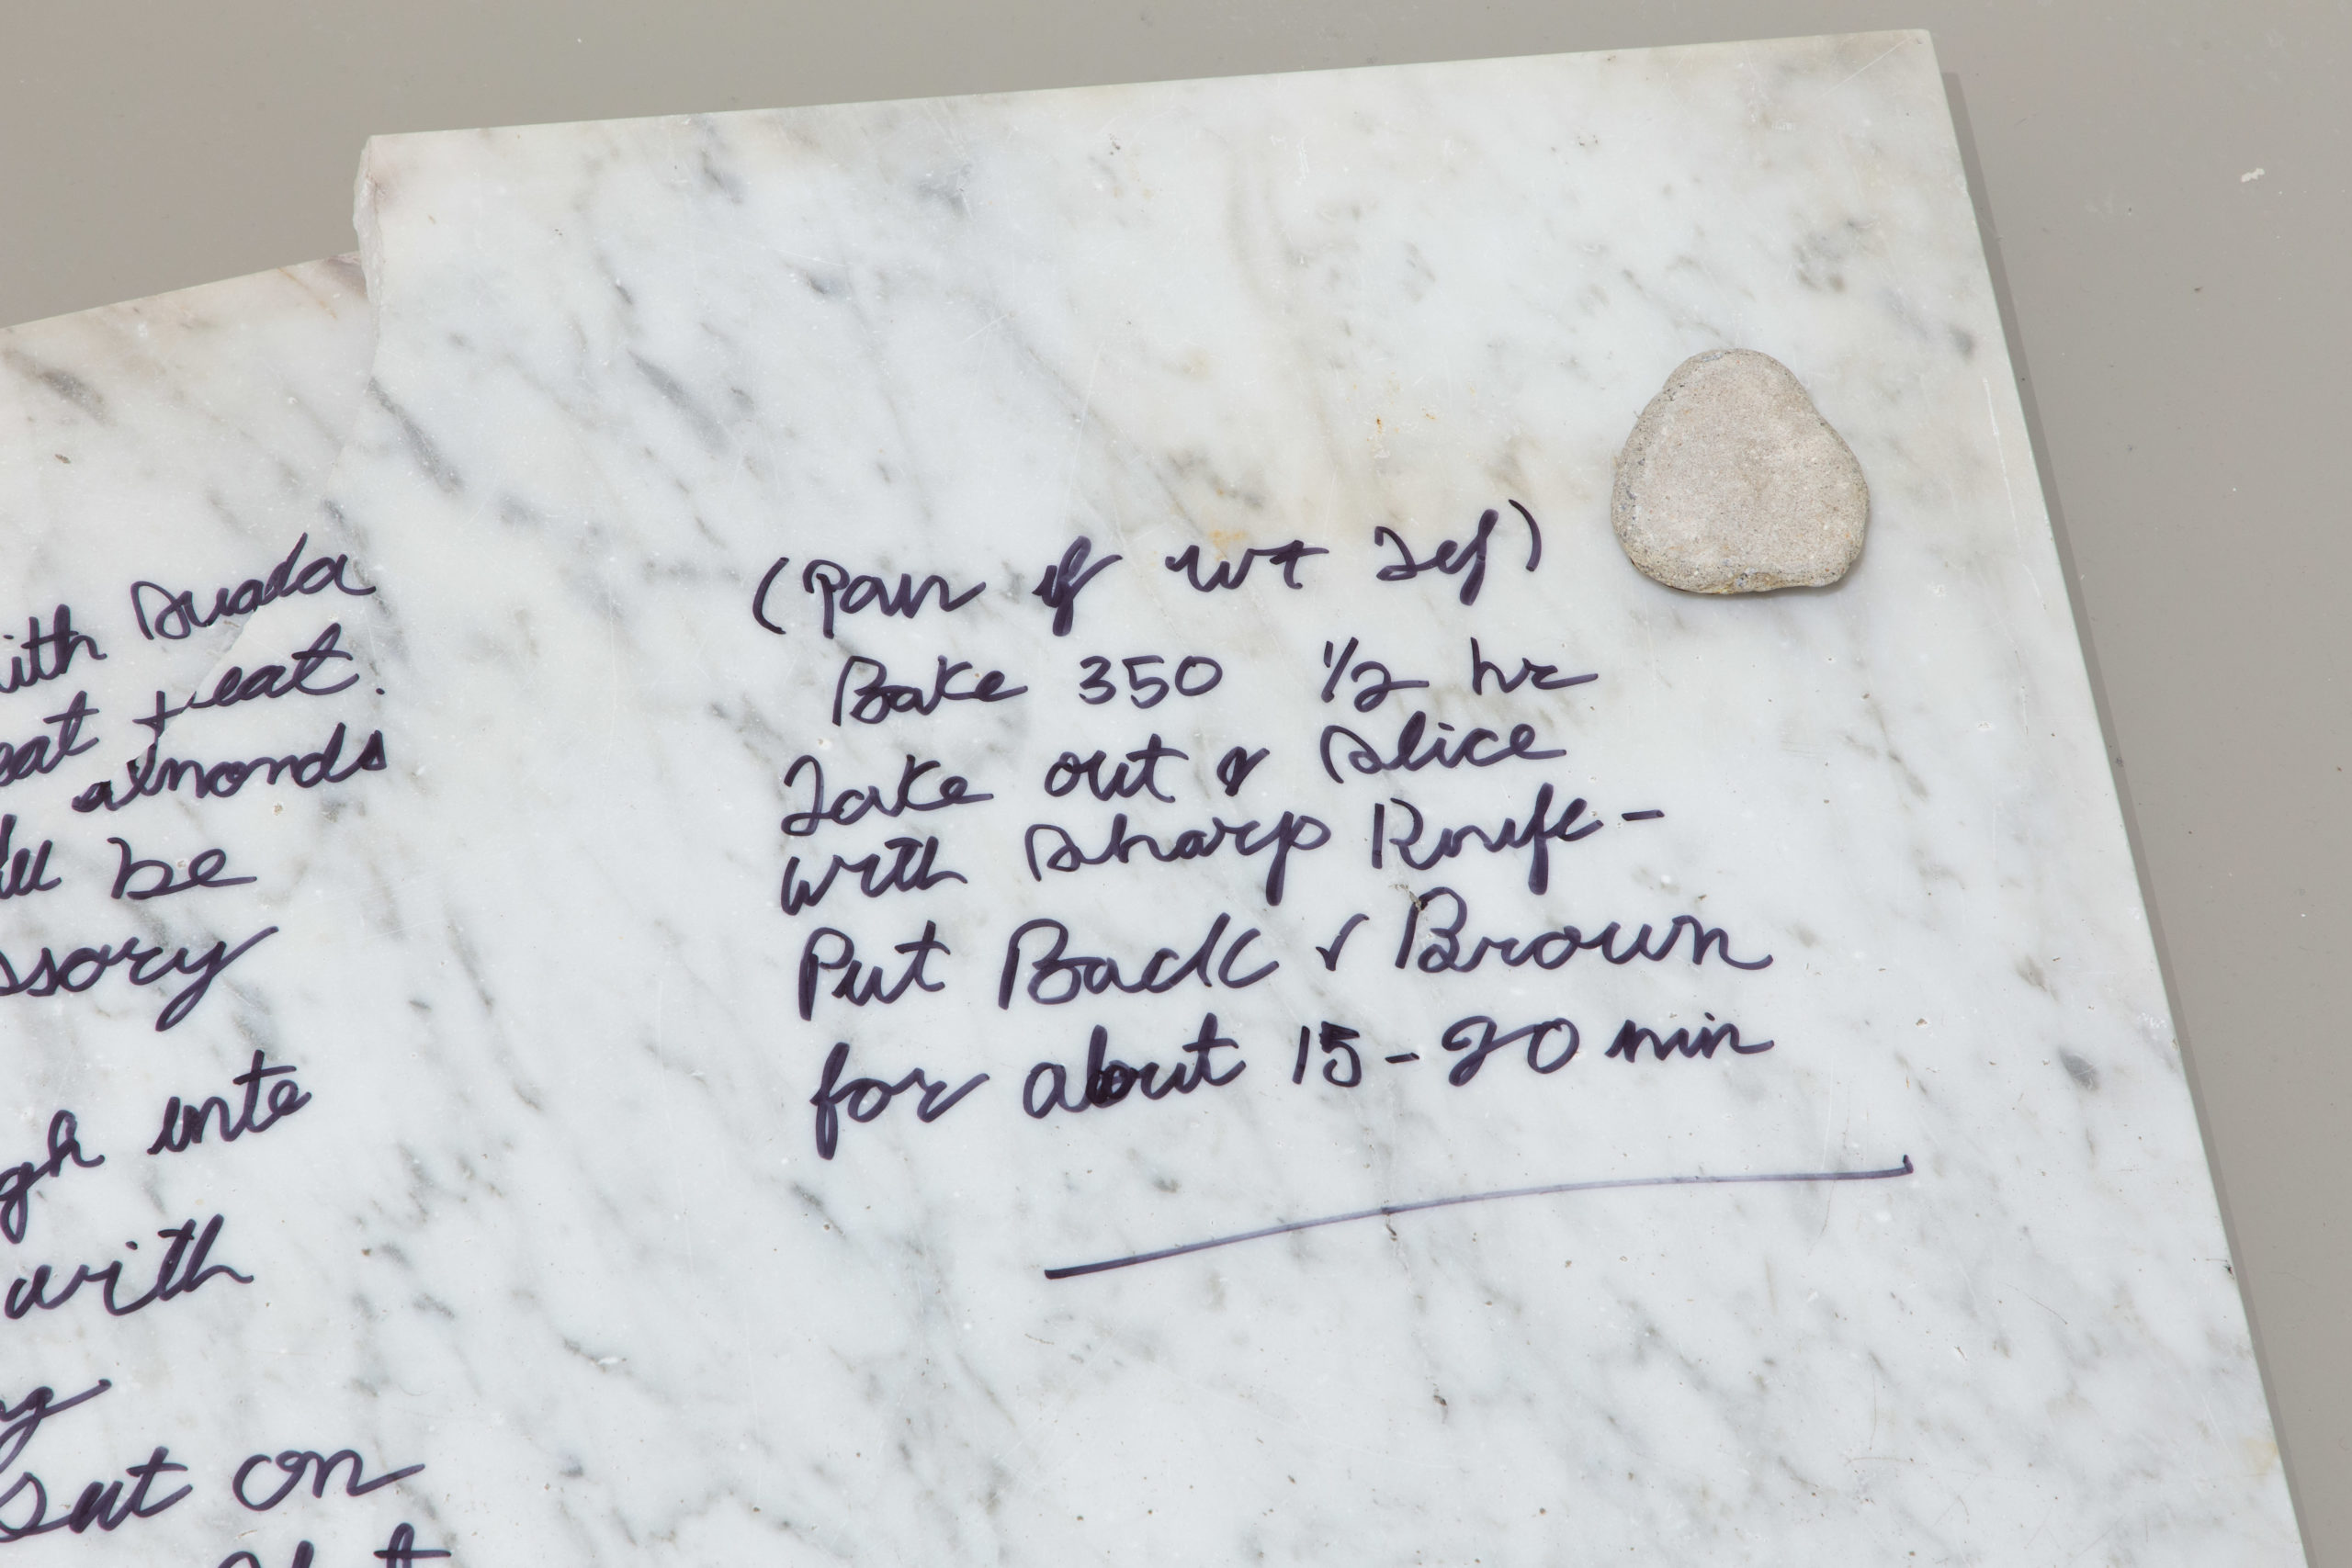 ith suada
eat + eat.
almonds
ll be
ssory
gh inte
with
sut on
(Pan if wt Tef)
Bake 350 1/2 hr
Take out & slice
with sharp Knife -
Put Back & Brown
for about 15-20 min